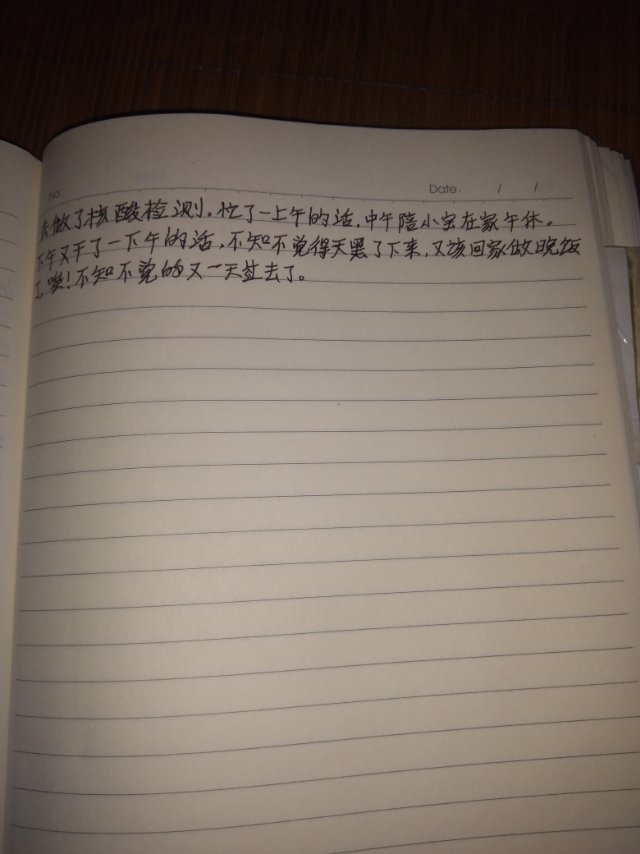 No.
Date: / /
去做了核酸检测。忙了一上午的活,中午陪小宝在家午休。
下午又干了一下午的活,不知不觉得天黑了下来,又该回家做晚饭
了。唉!不知不觉的又一天过去了。